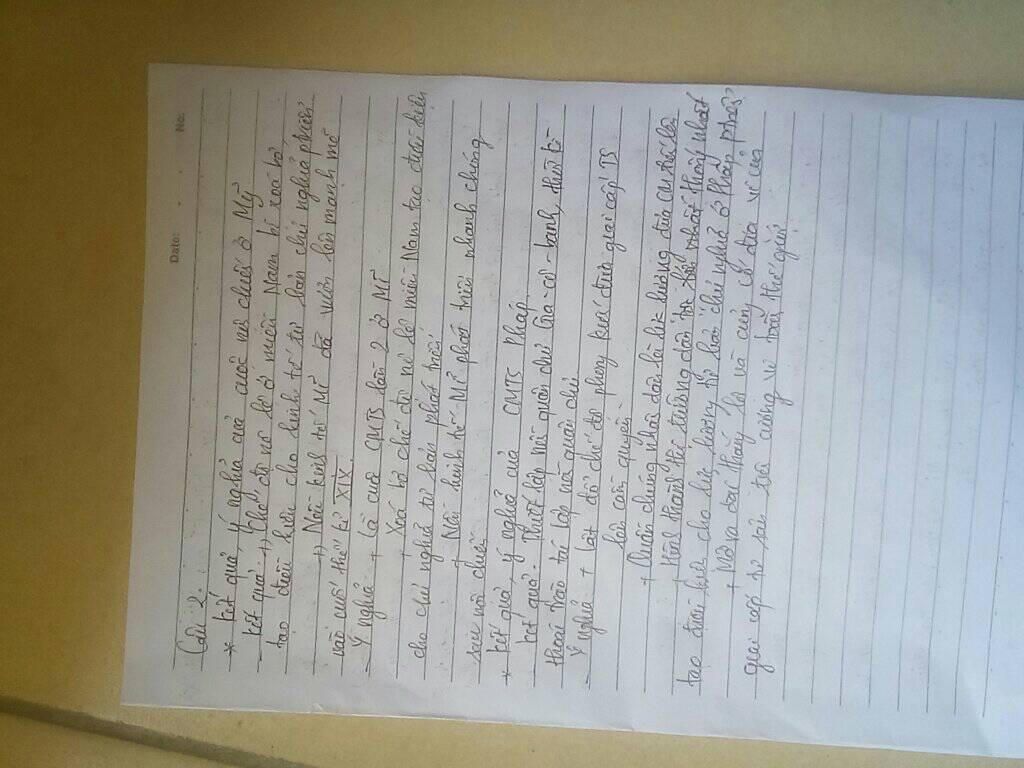 Date: No:
Câu 2.
* kết quả, ý nghĩa của cuộc nội chiến ở Mỹ
- kết quả: +) Chế độ nô lệ ở miền Nam bị xoá bỏ
tạo điều kiện cho kinh tế tư bản chủ nghĩa phát
+) Nền kinh tế Mĩ đã vươn lên mạnh mẽ
vào cuối thế kỉ XIX.
- Ý nghĩa + là cuộc CMTS lần 2 ở Mĩ
+ Xoá bỏ chế độ nô lệ miền Nam tạo điều kiện
cho chủ nghĩa tư bản phát triển
+ Nền kinh tế Mĩ phát triển nhanh chóng
sau nội chiến
* kết quả, ý nghĩa của CMTS Pháp
- kết quả: Thiết lập nền quân chủ Gia-cô-banh, thời kì
thoái trào tái lập nền quân chủ
- Ý nghĩa + Lật đổ chế độ phong kiến đưa giai cấp TS
lên cầm quyền
+ Quần chúng nhân dân là lực lượng đưa CM
hình thành thị trường dân tộc thống nhất
tạo điều kiện cho lực lượng tư bản chủ nghĩa ở Pháp phát
+ Mở ra thời đại thắng lợi và củng cố địa vị của
giai cấp tư sản trên thế giới